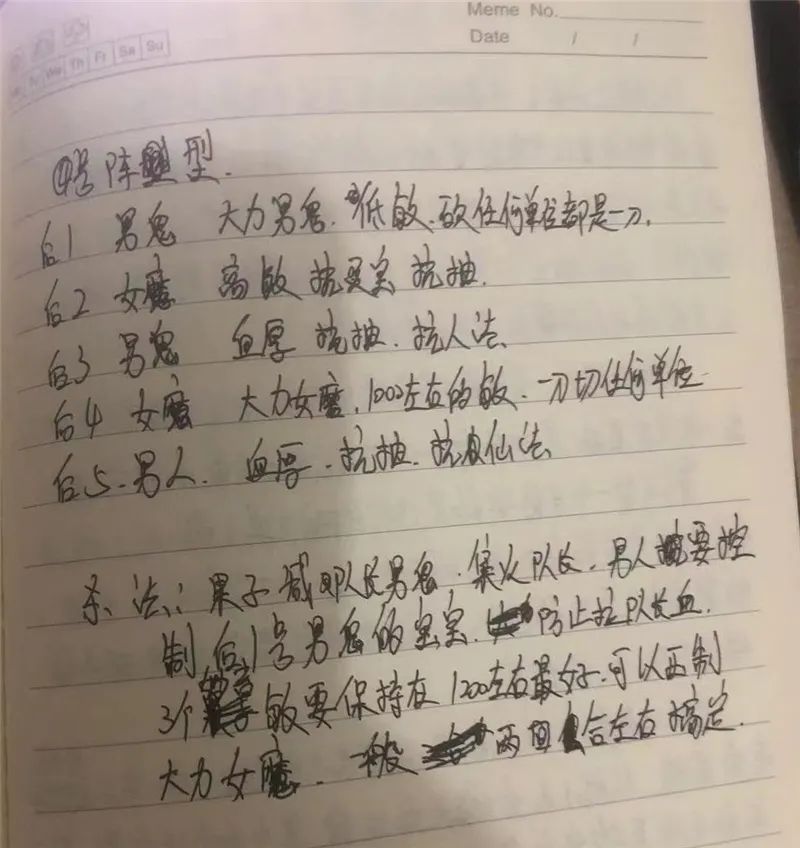 Meme No.
Date / /
We Th Fr Sa Su
④号阵型.
后1 男鬼 大力男鬼.低敏.砍任何单位都是一刀.
后2 女魔 高敏 抗灵宝 抗抽.
后3 男鬼 血厚 抗抽.抗人法.
后4 女魔 大力女魔.1000左右的敏.一刀切任何单位
后5.男人. 血厚.抗抽.抗仙法
杀法:果子减 队长男鬼.集火队长.男人要控
制后1号男鬼的宝宝.防止拉队长血.
3个 敏要保持在1200左右最好.可以 制
大力女魔.一般 两 回合左右搞定.